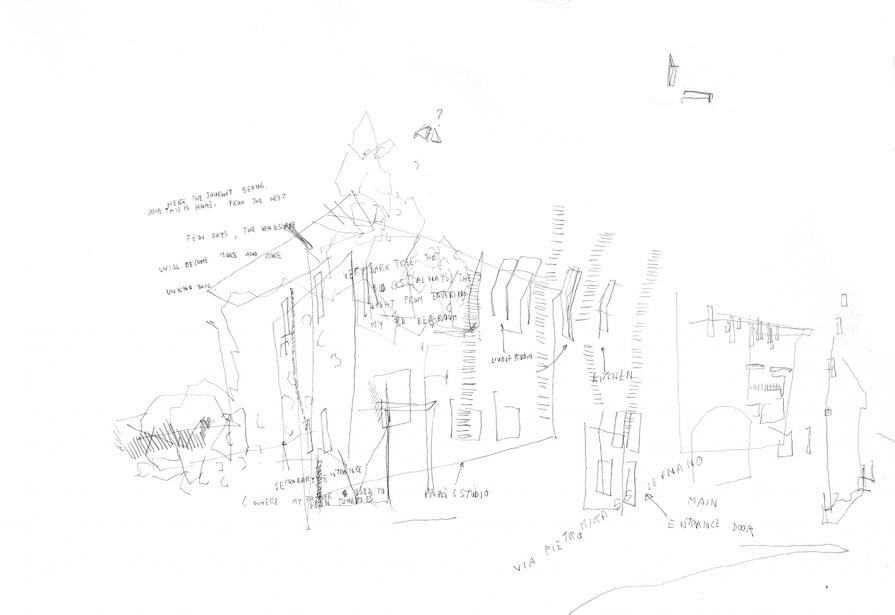 HERE THE JOURNEY BEGINS.
AND THIS IS HOME. FROM THE NEXT
FEW DAYS, THE LANDSCAPE
WILL BECOME MORE AND MORE
UNKNOWN
?
VERY DARK TREE THAT
ALWAYS THE
LIGHT FROM ENTERING
MY OLD BEDROOM
LIVING ROOM
KITCHEN
SECONDARY ENTRANCE
( WHERE MY USED TO
PAPÀ'S STUDIO
VIA PIETRO MICCA
LEGNANO
MAIN
ENTRANCE DOOR